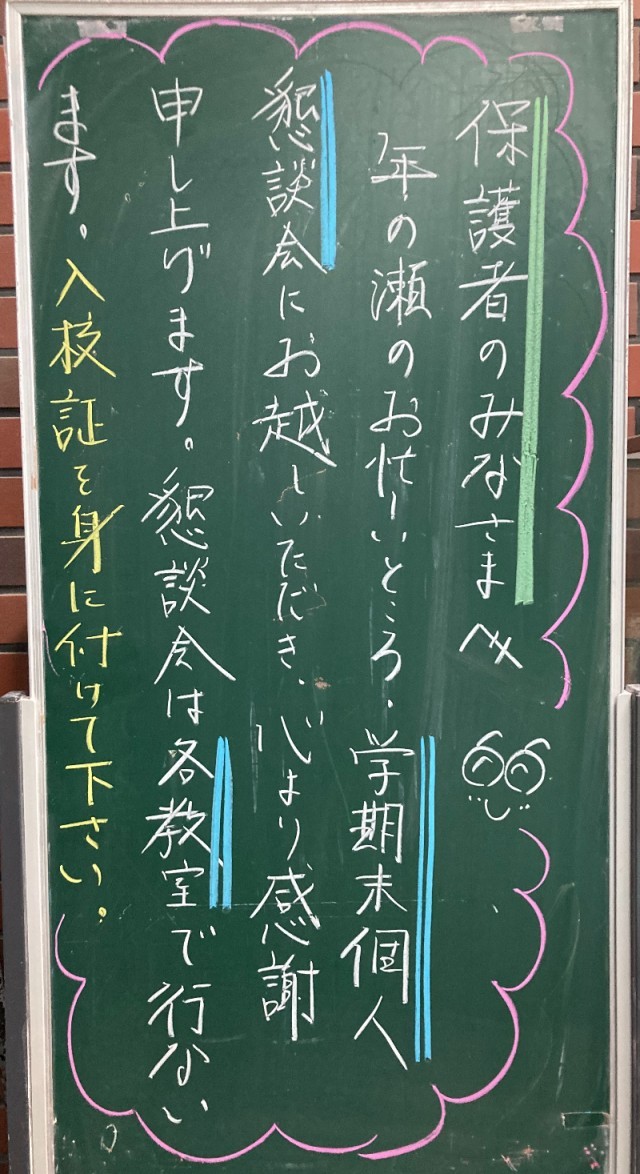 保護者のみなさまへ
年の瀬のお忙しいところ、学期末個人
懇談会にお越しいただき、心より感謝
申し上げます。懇談会は各教室で行ない
ます。入校証を身に付けて下さい。